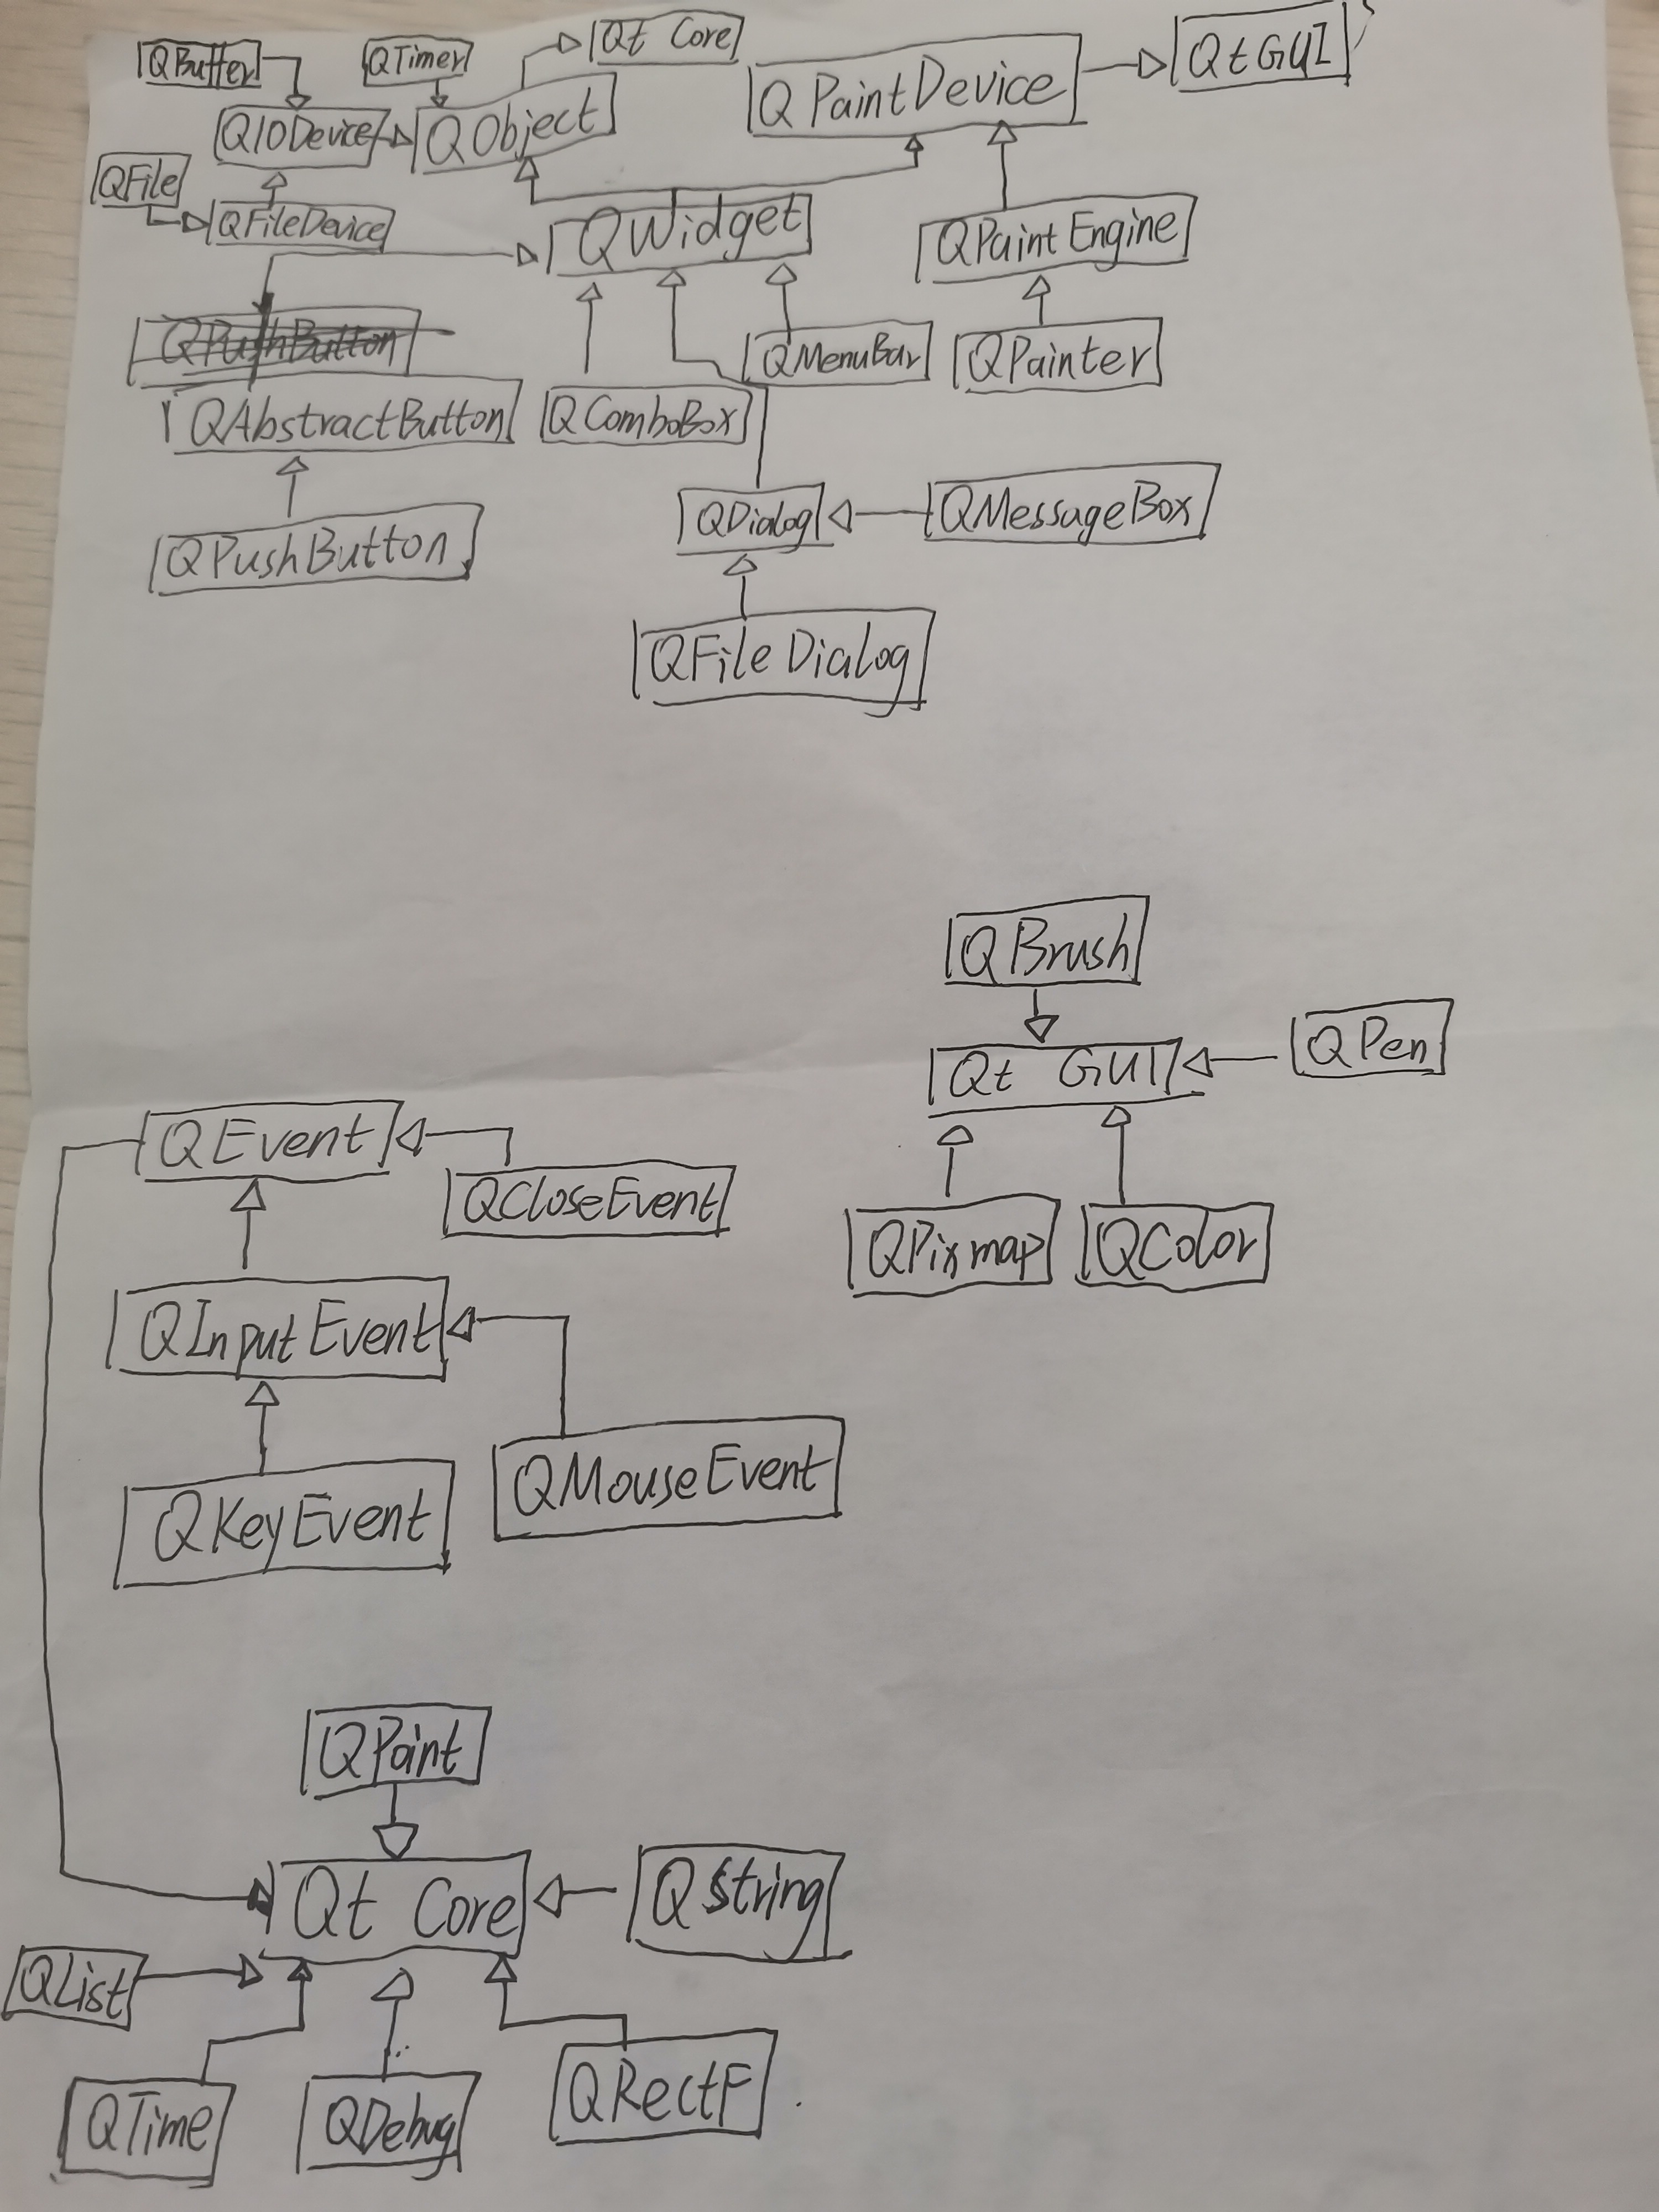 QBuffer
QTimer
Qt Core
QPaintDevice
QtGUI
QIODevice
QObject
QFile
QFileDevice
QWidget
QPaintEngine
QPushButton
QMenuBar
QPainter
QAbstractButton
QComboBox
QDialog
QMessageBox
QPushButton
QFileDialog
QBrush
Qt GUI
QPen
QEvent
QCloseEvent
QPixmap
QColor
QInputEvent
QMouseEvent
QKeyEvent
QPaint
Qt Core
QString
QList
QTime
QDebug
QRectF